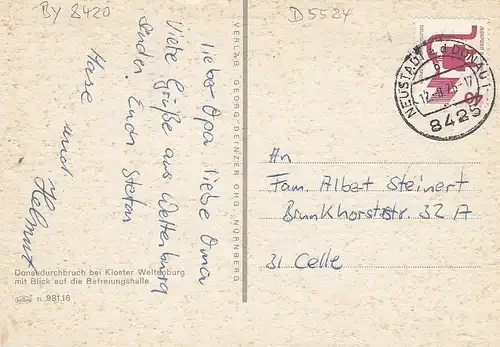 BY 8420
D 5524
lieber Opa liebe Oma
Viele Grüße aus Weltenburg
senden Euch Stefan
Hase und Helmut
VERLAG GEORG DEINZER OHG NÜRNBERG
NEUSTADT a d DONAU 1
17
8425
40
An
Fam. Albert Steinert
Brunkhorststr. 32 A
31 Celle
Donaudurchbruch bei Kloster Weltenburg
mit Blick auf die Befreiungshalle
11 981.16